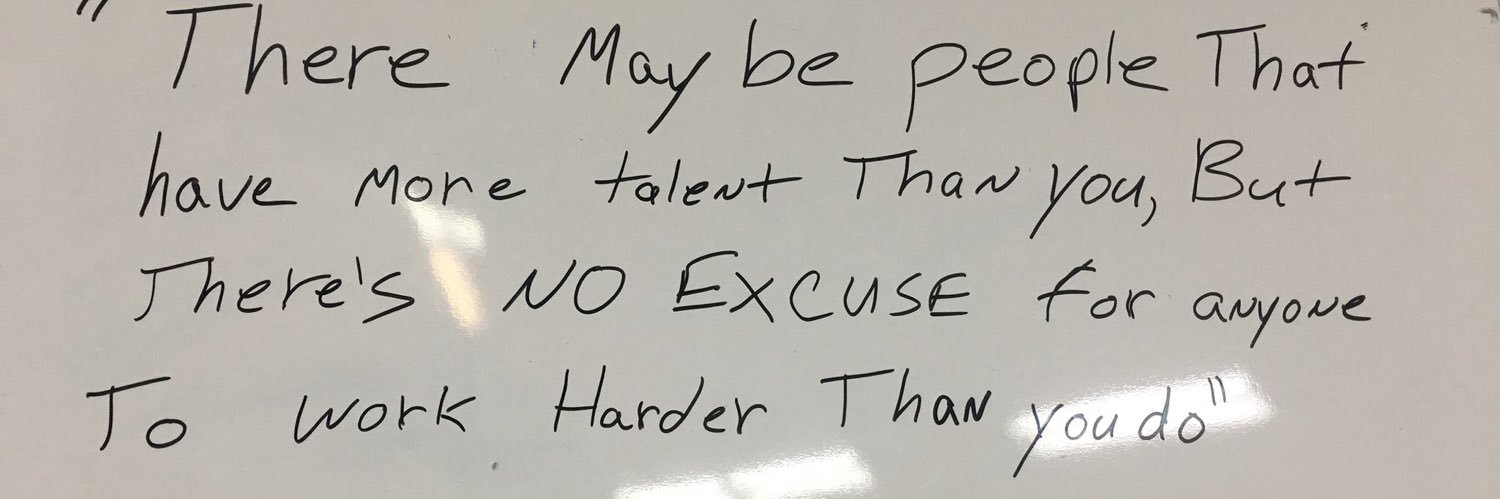 "There May be people That
have more talent Than you, But
There's NO EXCUSE for anyone
To work Harder Than you do"